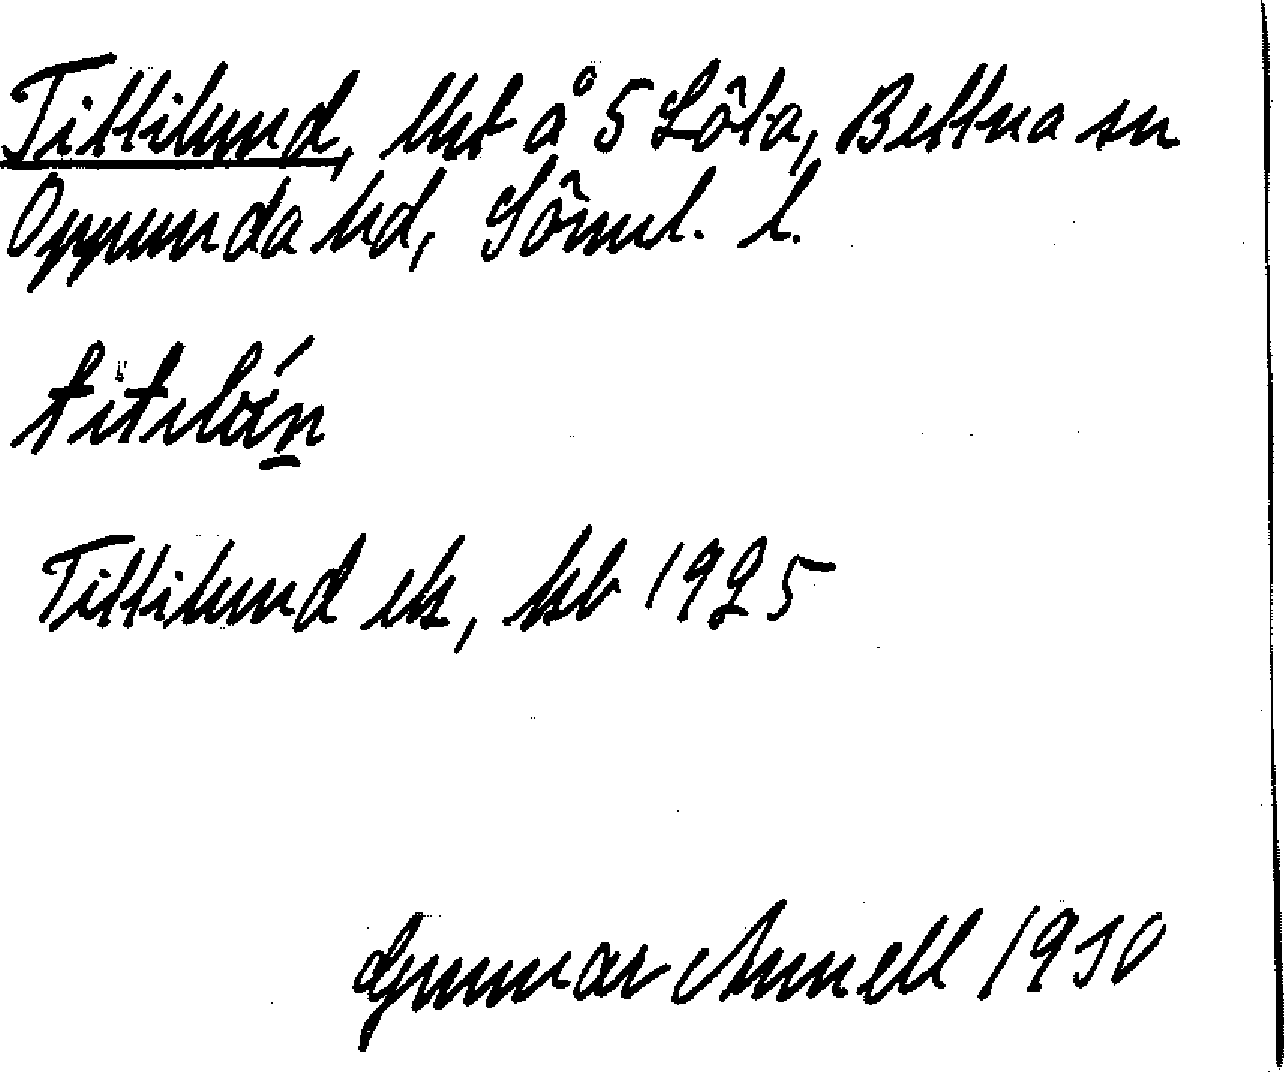 Tittilund, lht å 5 Löta, Bettna sn
Oppunda hd, Söml. l.
Tittilund ek, kb 1925
Gunnar Annell 1930